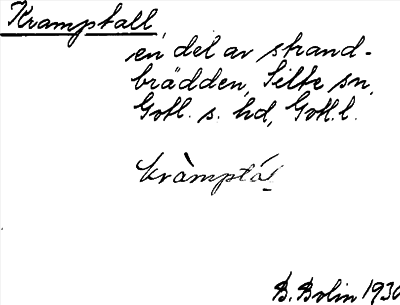 Kramptall,
en del av strand-
brädden, Silte sn,
Gotl. s. hd, Gotl. l.
kràmptá
B. Bolin 1930